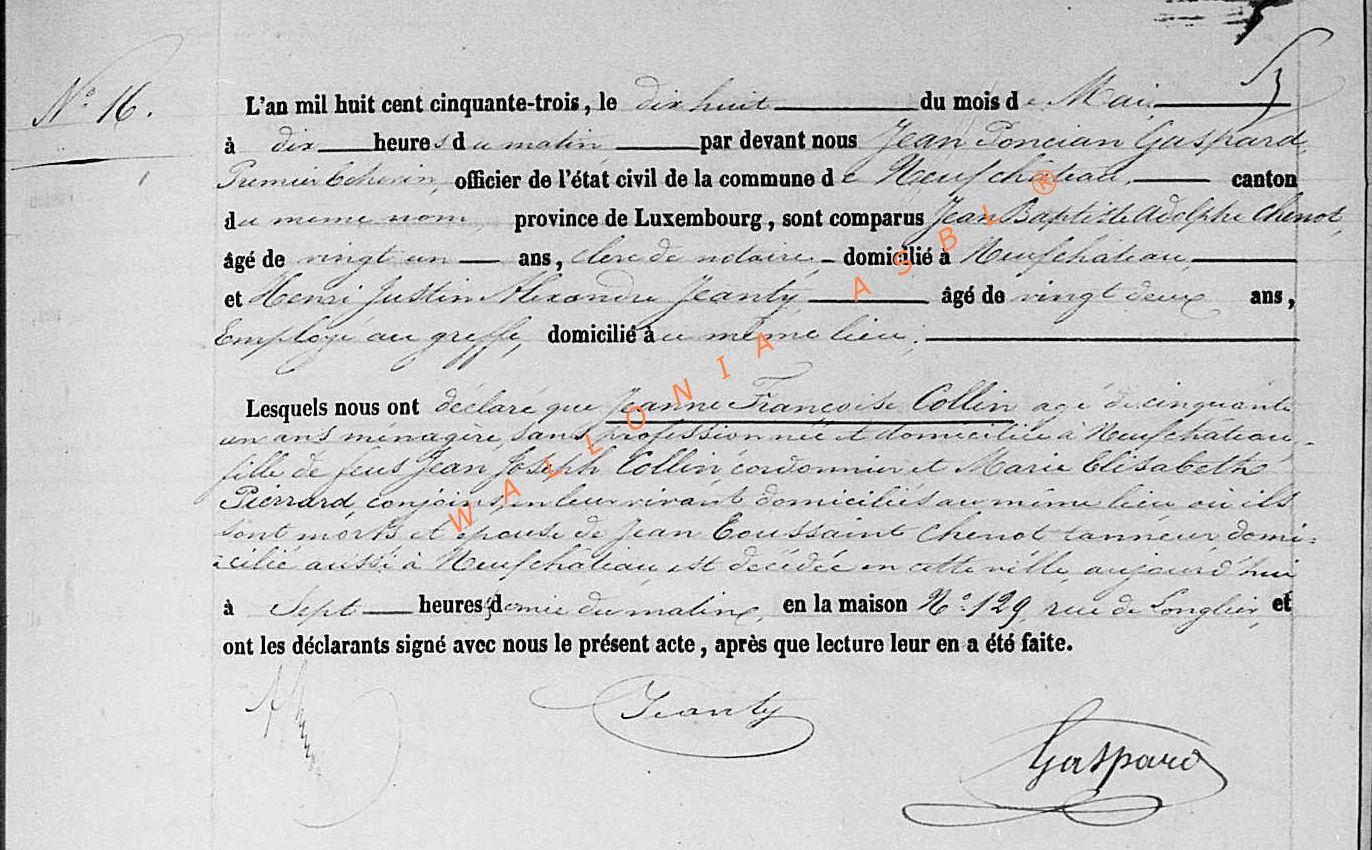 N° 16.
L'an mil huit cent cinquante-trois, le dix huit du mois de Mai
à dix heures du matin par devant nous Jean Poncian Gaspard
Premier Echevin officier de l'état civil de la commune de Neufchâteau, canton
du même nom, province de Luxembourg, sont comparus Jean Baptiste Adolphe Chenot,
âgé de vingt un ans, clerc de notaire, domicilié à Neufchâteau,
et Henri Justin Alexandre Jeanty âgé de vingt deux ans,
Employé au greffe, domicilié au même lieu;
Lesquels nous ont déclaré que Jeanne Françoise Collin agé de cinquante
un ans ménagère, sans profession née et domiciliée à Neufchâteau,
fille de feus Jean Joseph Collin cordonnier et Marie Elisabeth
Piérrard, conjoins, en leur vivant domiciliés au même lieu où ils
sont morts et épouse de Jean Toussaint Chenot tanneur domi=
=cilié aussi à Neufchâteau, est décédée en cette ville, aujourd'hui
à Sept heures et demie du matin, en la maison N° 129, rue de Longlier, et
ont les déclarants signé avec nous le présent acte, après que lecture leur en a été faite.
Jeanty
Gaspard
WALLONIA ASBL ®